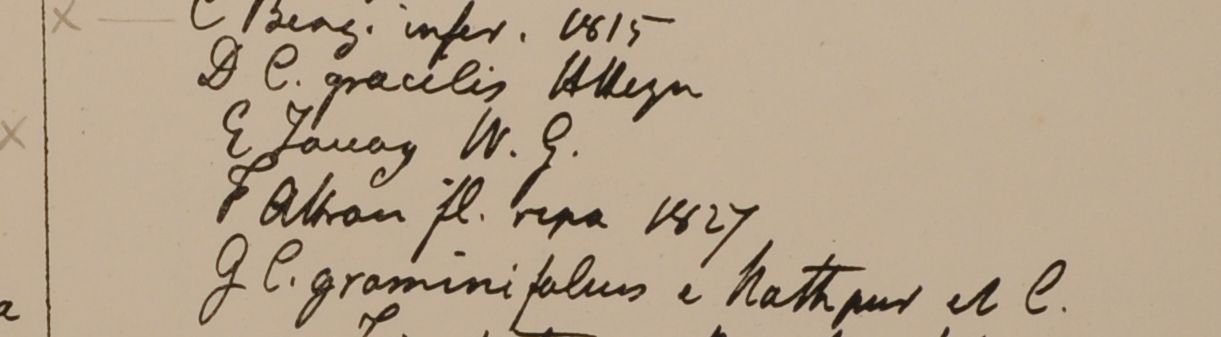 C Beng. infer. 1815
D C. gracilis HHeyn
E Tavoy W. G.
F Attran fl. ripa 1827
G C. graminifolius e Nathpur et C.